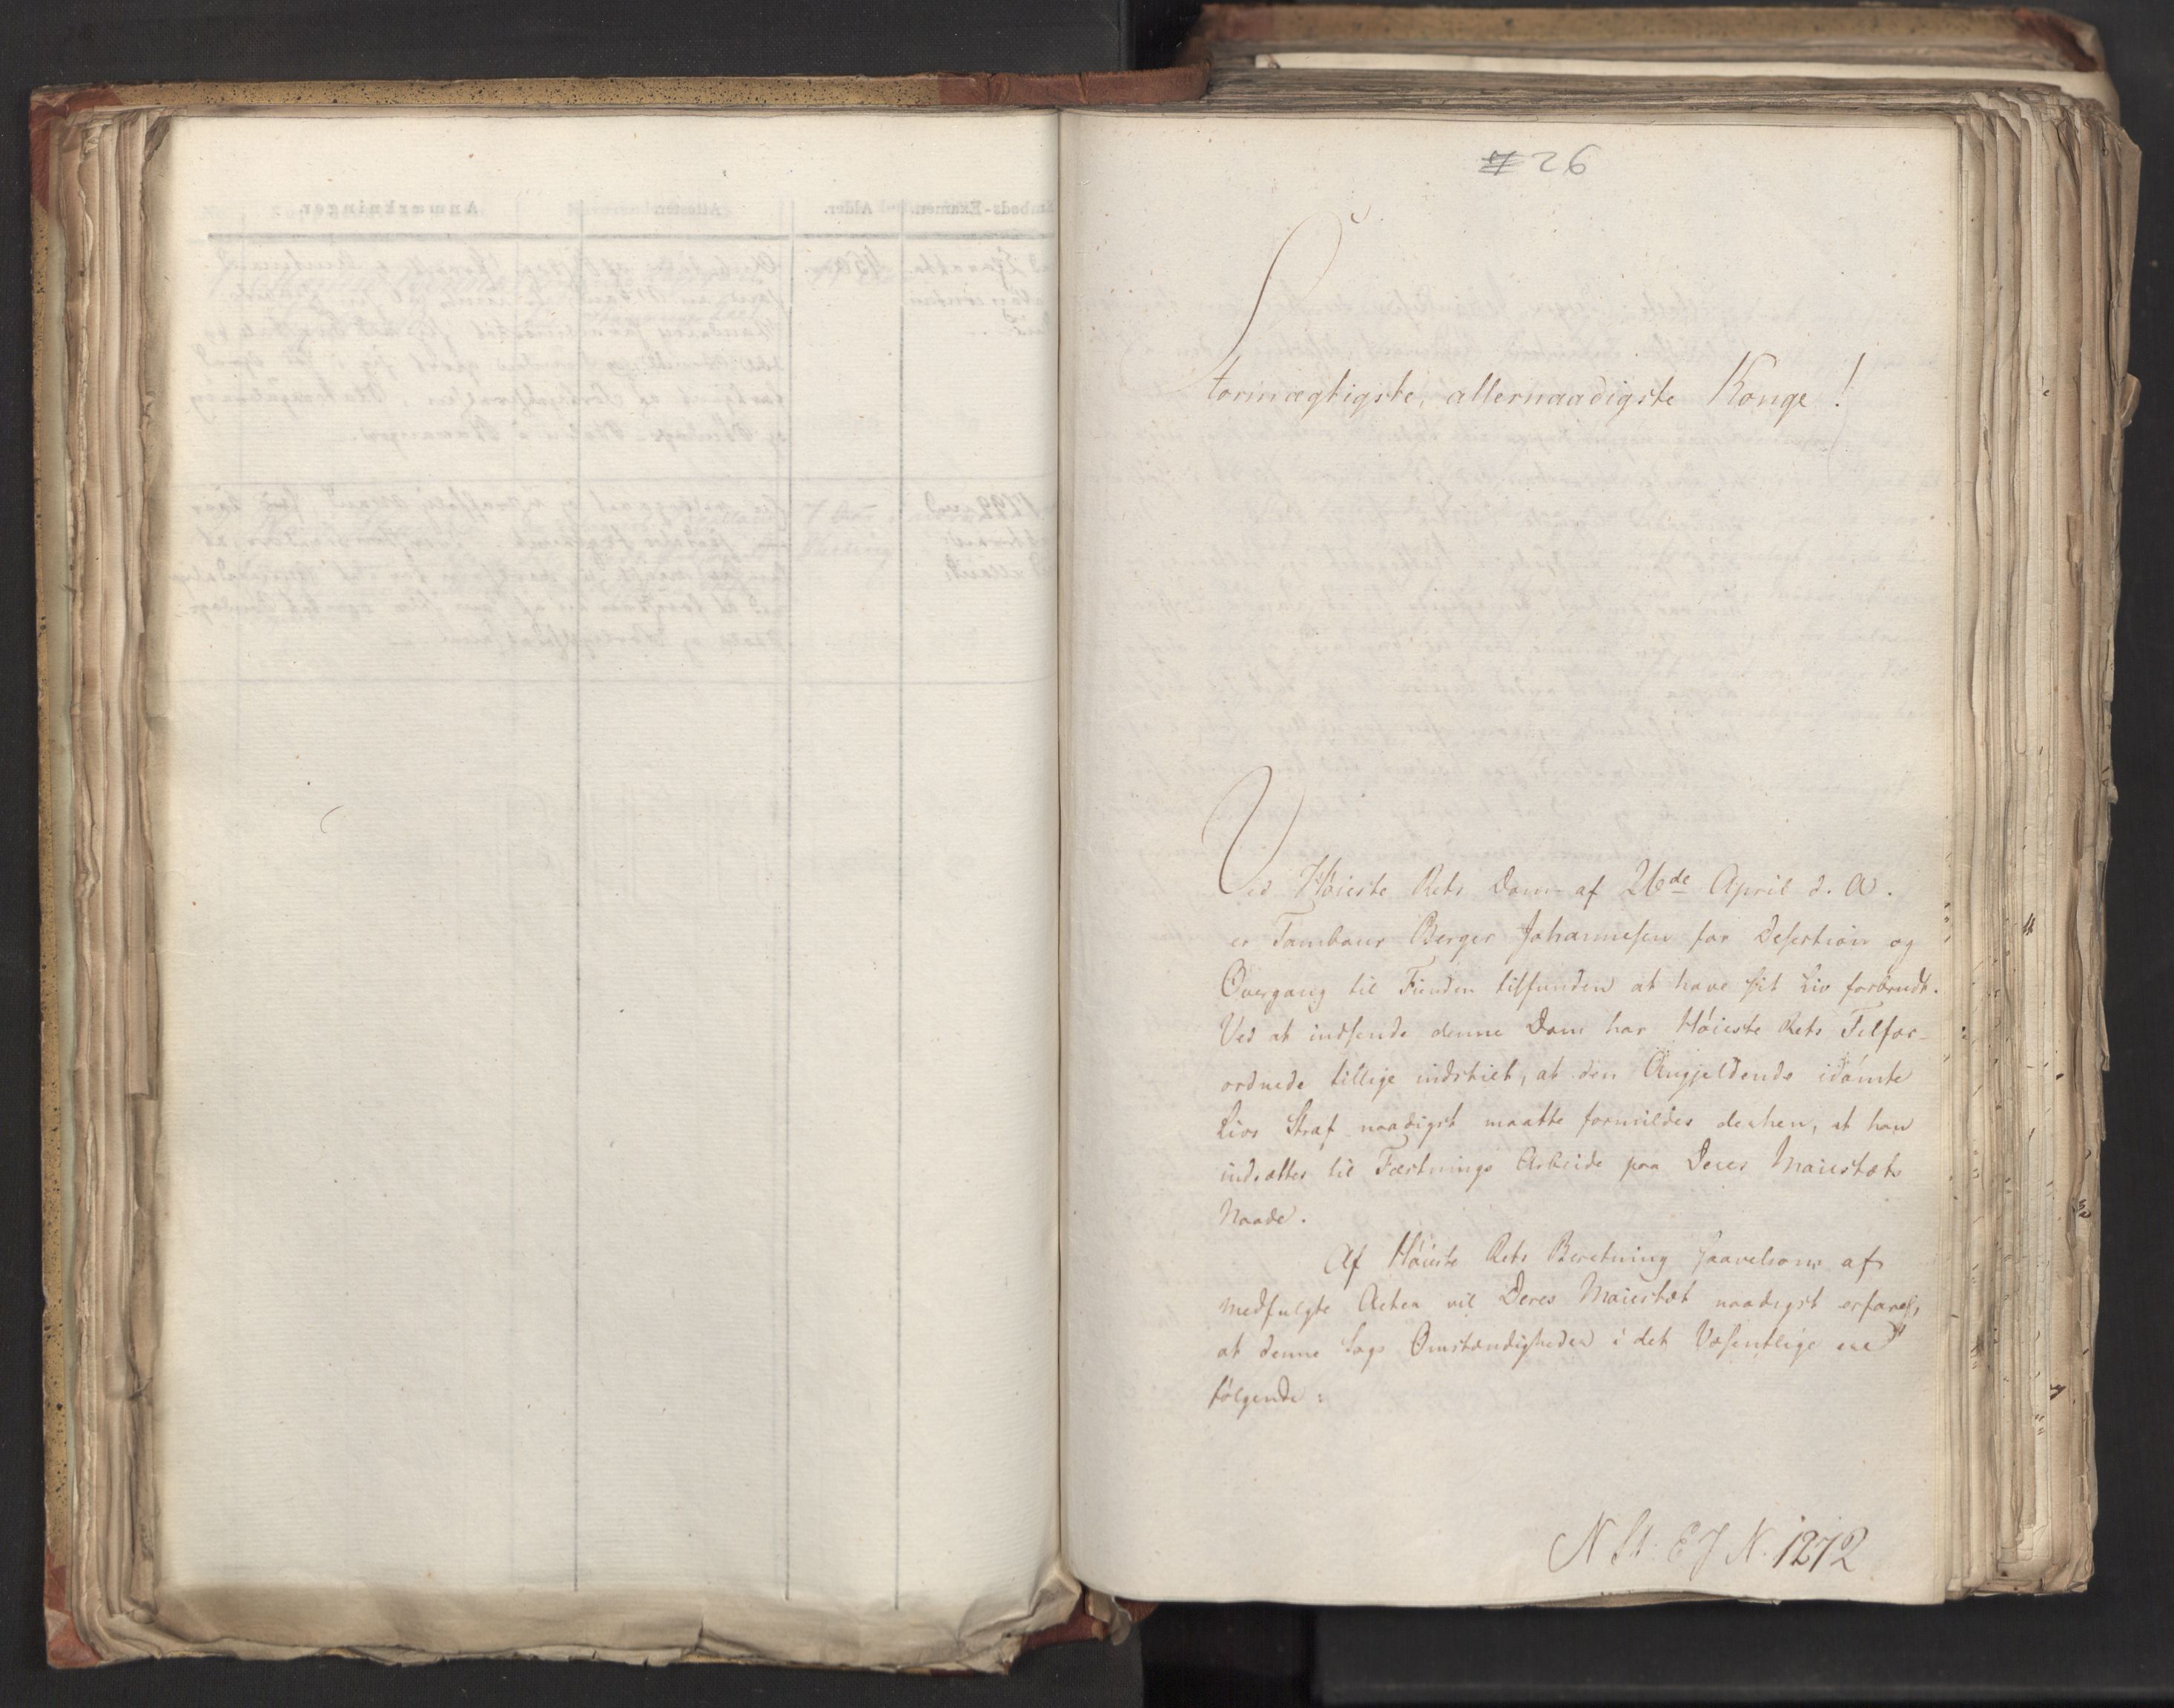 # 26
Stormægtigste, allernaadigste Konge!
Ved Høieste Rets Dom af 26de April d. A.
er Tambour Berger Johannesen for Desertion og
Overgang til Fienden tilfunden at have sit Liv forbrudt.
Ved at indsende denne Dom har Høieste Rets Tilfor-
ordnede tillige indstilt, at den Angjeldende idømte
Livs Straf naadigst maatte formildes derhen, at han
indsættes til Fæstnings Arbeide paa Deres Maiestæts
Naade.
Af Høieste Rets Beretning saavelsom af
medfulgte Acter vil Deres Maiestæt naadigst erfares,
at denne Sags Omstændigheder i det Væsentlige ere
følgende:
N St. E J N. 1272